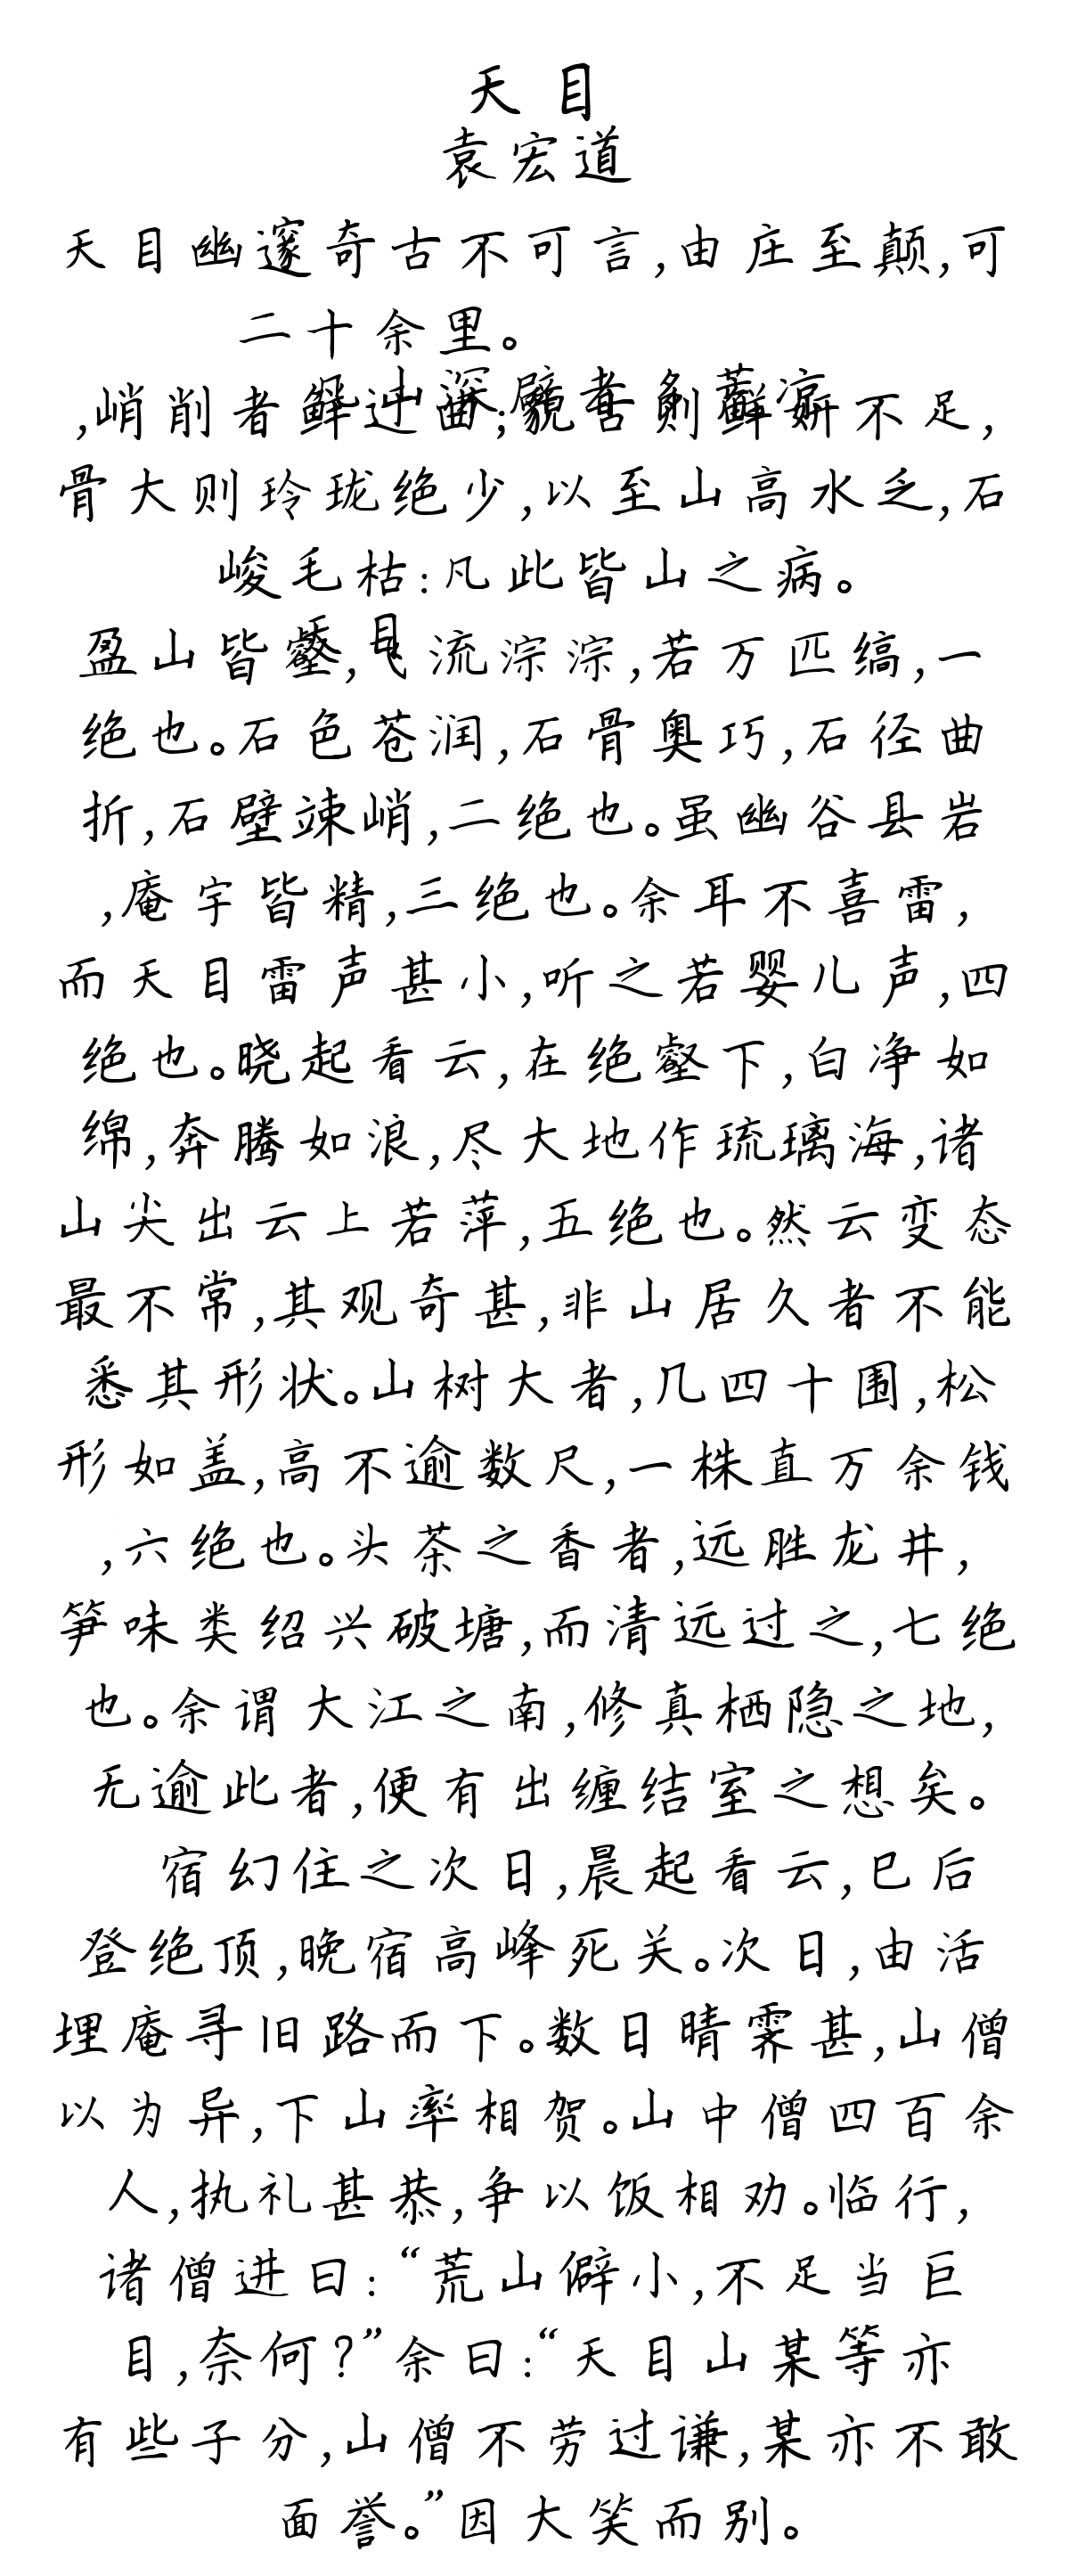 天目
袁宏道
天目幽邃奇古不可言,由庄至颠,可
二十余里。
凡山深僻者多荒凉
,峭削者鲜迂曲;貌古则鲜妍不足,
骨大则玲珑绝少,以至山高水乏,石
峻毛枯:凡此皆山之病。
天目
盈山皆壑,飞流淙淙,若万匹缟,一
绝也。石色苍润,石骨奥巧,石径曲
折,石壁竦峭,二绝也。虽幽谷县岩
,庵宇皆精,三绝也。余耳不喜雷,
而天目雷声甚小,听之若婴儿声,四
绝也。晓起看云,在绝壑下,白净如
绵,奔腾如浪,尽大地作琉璃海,诸
山尖出云上若萍,五绝也。然云变态
最不常,其观奇甚,非山居久者不能
悉其形状。山树大者,几四十围,松
形如盖,高不逾数尺,一株直万余钱
,六绝也。头茶之香者,远胜龙井,
笋味类绍兴破塘,而清远过之,七绝
也。余谓大江之南,修真栖隐之地,
无逾此者,便有出缠结室之想矣。
宿幻住之次日,晨起看云,巳后
登绝顶,晚宿高峰死关。次日,由活
埋庵寻旧路而下。数日晴霁甚,山僧
以为异,下山率相贺。山中僧四百余
人,执礼甚恭,争以饭相劝。临行,
诸僧进曰:“荒山僻小,不足当巨
目,奈何?”余曰:“天目山某等亦
有些子分,山僧不劳过谦,某亦不敢
面誉。”因大笑而别。